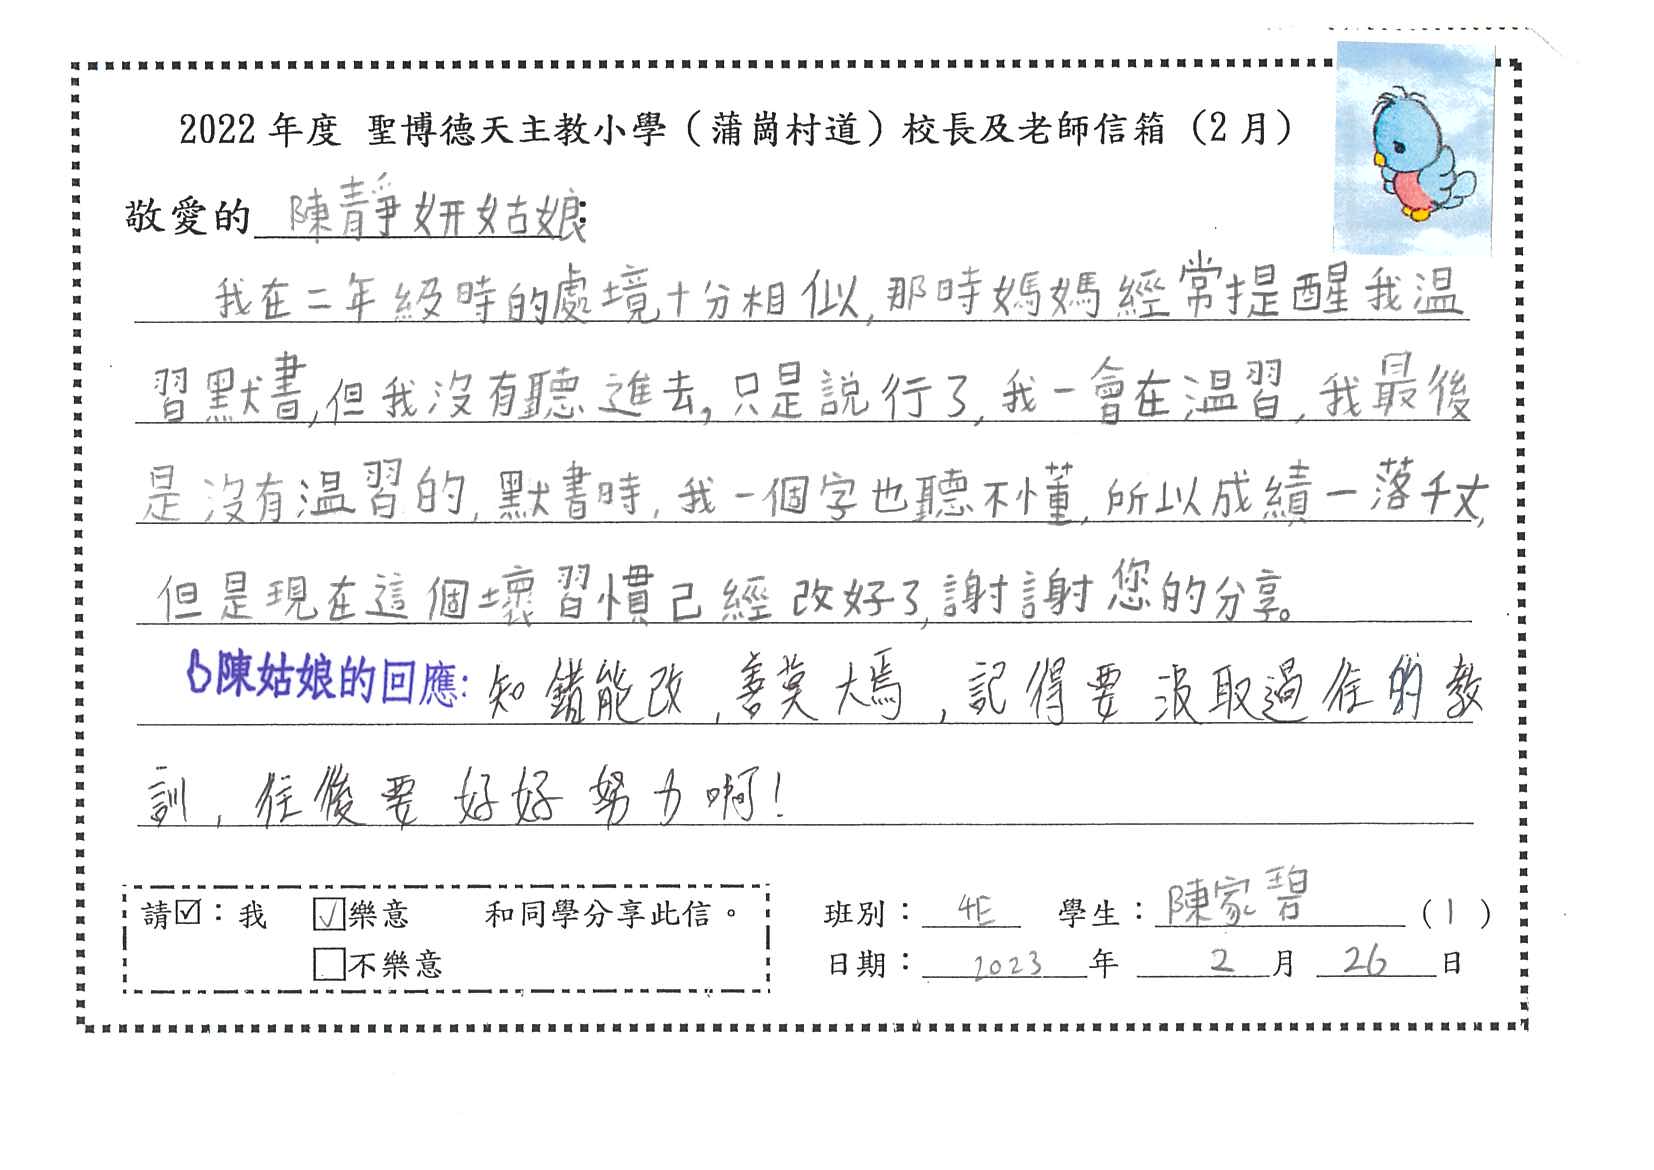 2022 年度 聖博德天主教小學（蒲崗村道）校長及老師信箱（2 月）
敬愛的 陳靜妍姑娘:
我在二年級時的處境十分相似,那時媽媽經常提醒我溫
習默書,但我沒有聽進去,只是說行了,我一會在溫習,我最後
是沒有溫習的,默書時,我一個字也聽不懂,所以成績一落千丈,
但是現在這個壞習慣己經改好了,謝謝您的分享。
陳姑娘的回應: 知錯能改,善莫大焉,記得要汲取過往的教
訓,往後要好好努力啊!
請☑：我 ☑樂意 和同學分享此信。 班別： 4E 學生： 陳家碧 (1)
□不樂意 日期： 2023 年 2 月 26 日